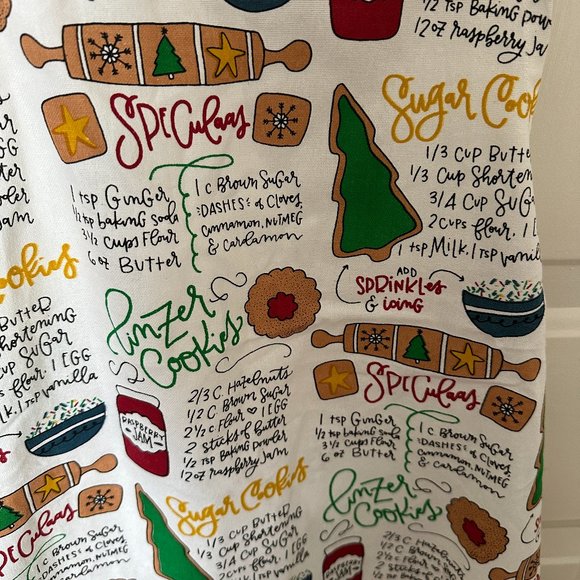 1/2 tsp Baking pow
12 oz raspberry Jam
SPECulaas
1 tsp GinGer
1/2 tsp baking soda
3 1/2 cups Flour
6 oz Butter
1 C Brown SuGar
DASHES of Cloves,
Cinnamon, NUTMEG
& Cardamon
Sugar Cook
1/3 Cup Butte
1/3 Cup Shorten
3/4 Cup SuG
2 cups flour, 1 E
1 tsp Milk, 1 tsp vanil
ADD
SPRinKles
& icing
ookies
Butter
Shortening
Cup SuGar
flour, 1 EGG
Milk, 1 tsp vanilla
Linzer
Cookies
RASPBERRY
JAM
2/3 C. Hazelnuts
1/2 C Brown Sugar
2 1/2 C Flour & 1 EGG
2 sticks of butter
1/2 tsp Baking Powder
12 oz raspberry Jam
SPECulaas
1 tsp GinGer
1/2 tsp baking soda
3 1/2 Cups Flour
6 oz Butter
1 C Brown SuGar
DASHES of Cloves,
Cinnamon, NUTMEG
& Cardamon
SPECulaas
1 C Brown SuGar
DASHES of Cloves,
Cinnamon, NUTMEG
& Cardamon
Sugar Cookies
1/3 Cup Butter
1/3 Cup Shortening
3/4 Cup SuGar
2 cups flour, 1 EGG
Linzer
Cookies
RASPBERRY
2/3 C. Hazelnuts